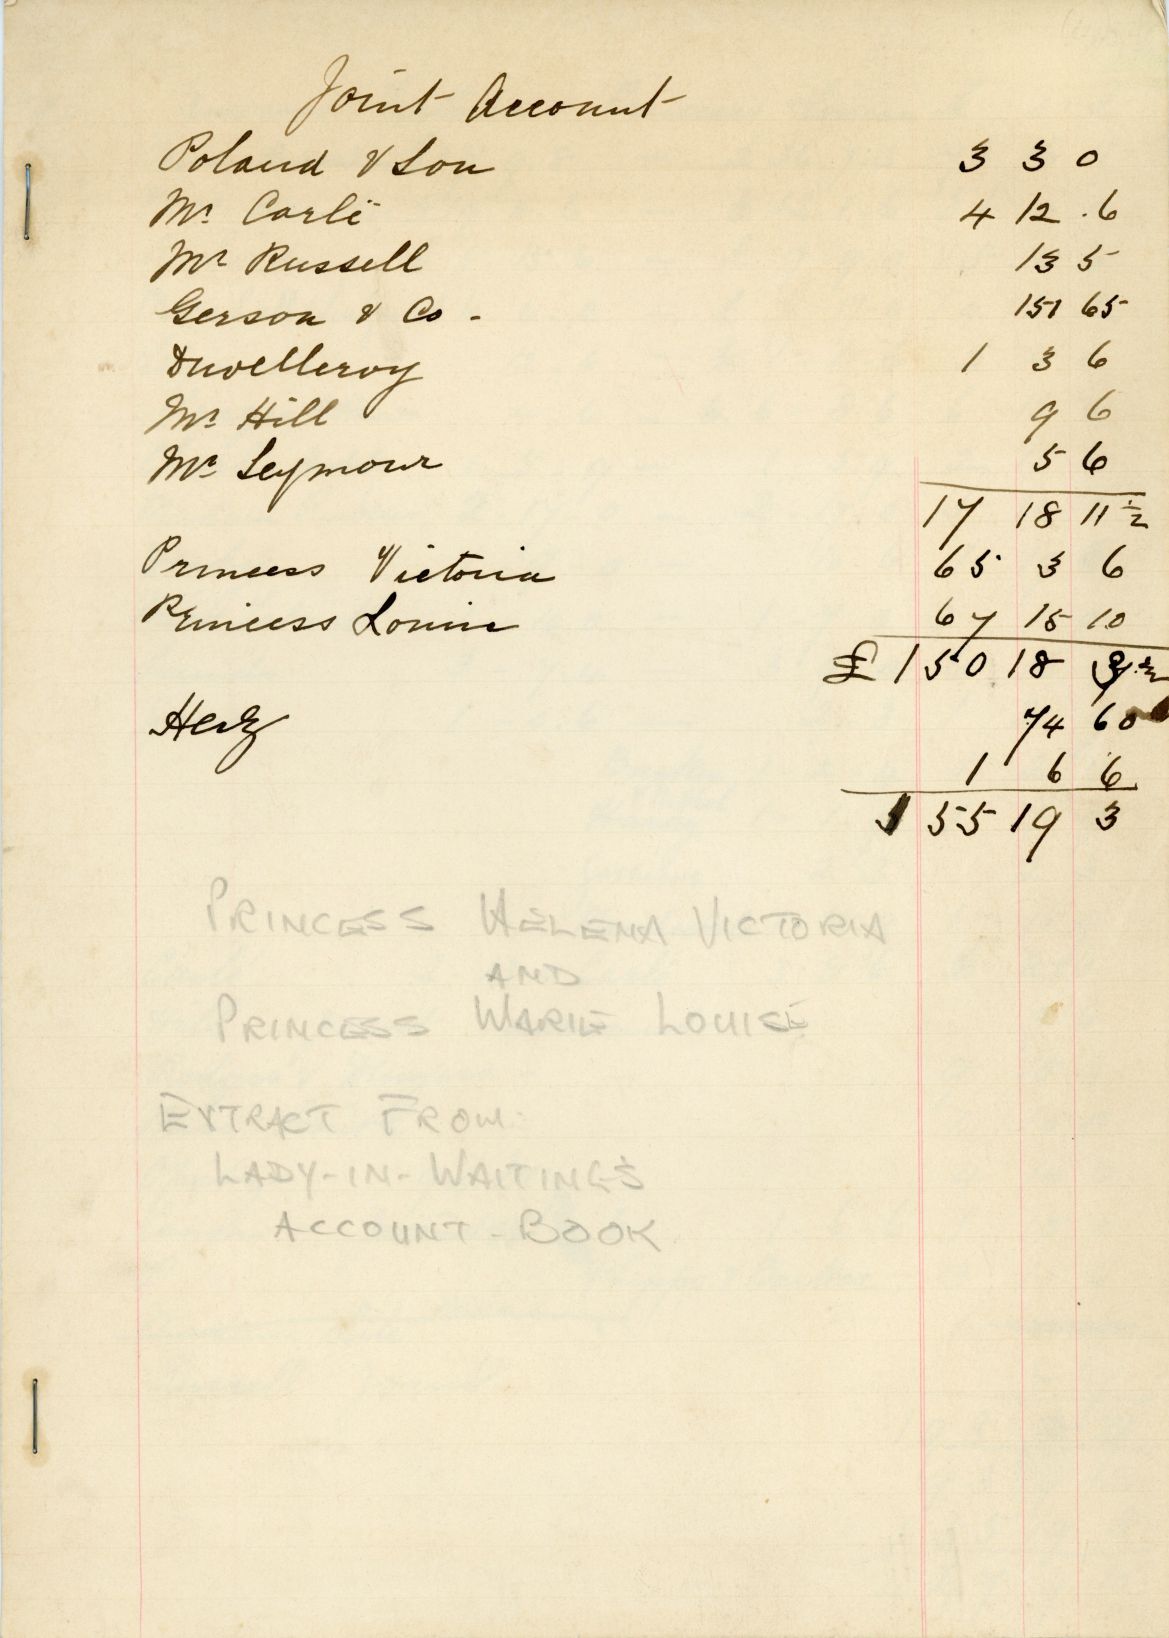 Joint Account
Poland & Son 3 3 0
Mr. Carli 4 12 . 6
Mr Russell 13 5
Gerson & Co - 151 65
Duvelleroy 1 3 6
Mr. Hill 9 6
Mr. Seymour 5 6
17 18 11 ½
Princess Victoria 65 3 6
Princess Louise 67 15 10
£ 150 18 ½
74 60
1 6 6
155 19 3
PRINCESS HELENA VICTORIA
AND
PRINCESS MARIE LOUISE
EXTRACT FROM
LADY-IN-WAITING'S
ACCOUNT-BOOK